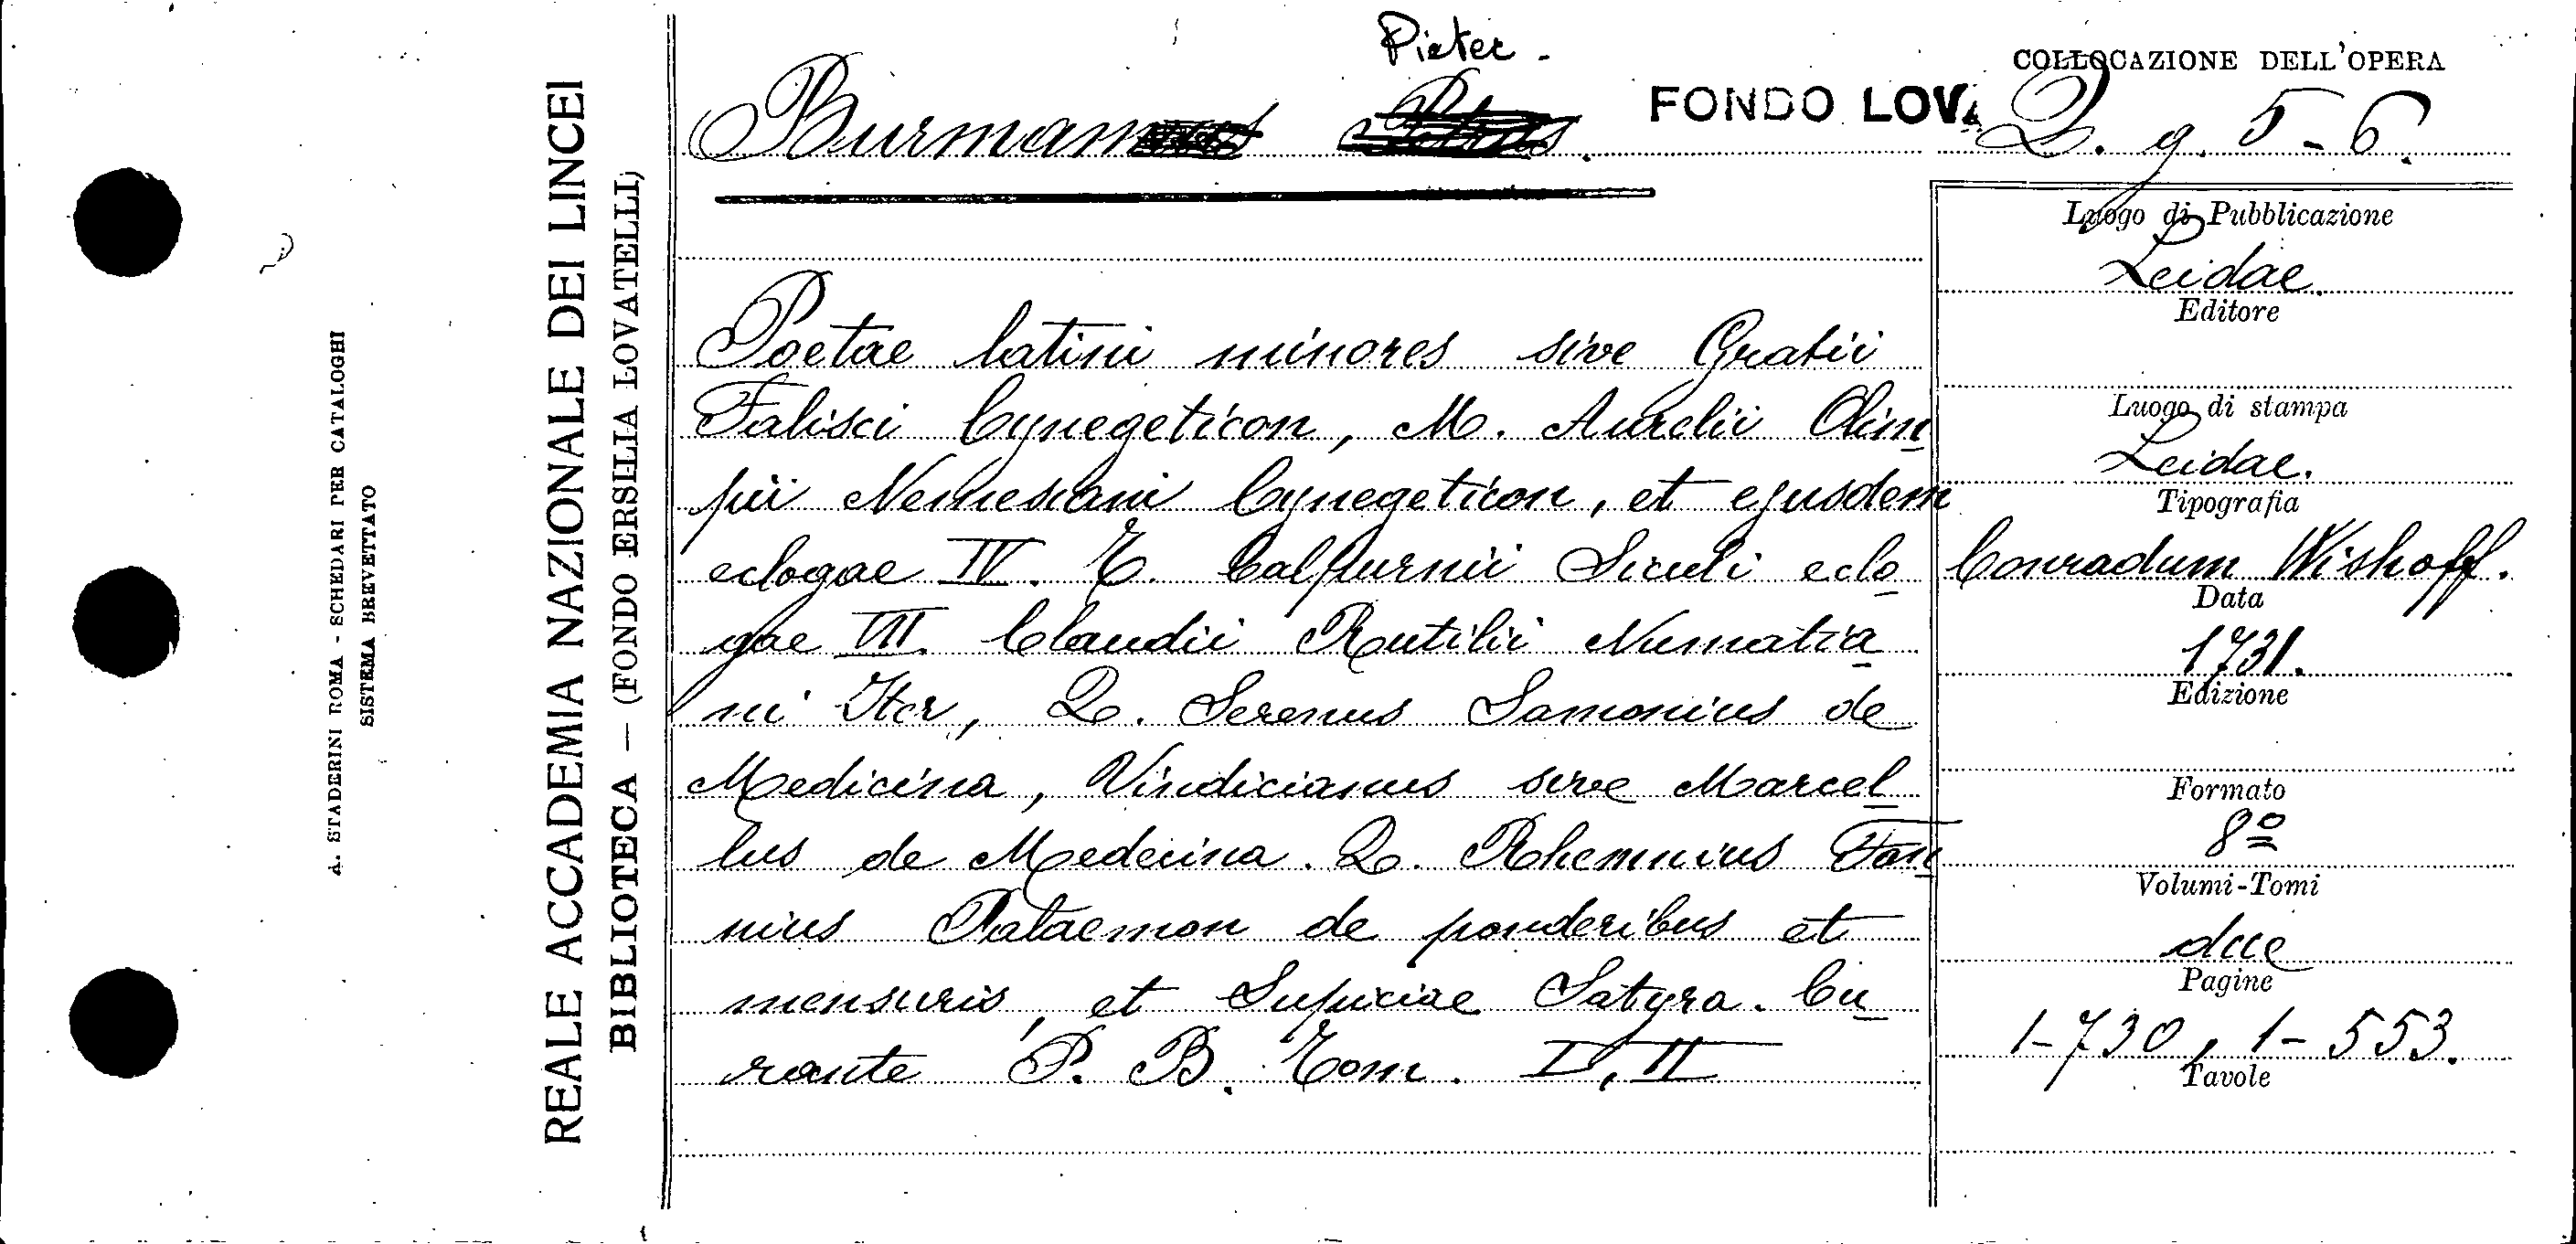 Pieter.
Burmannus Petrus.
FONDO LOVA
COLLOCAZIONE DELL'OPERA
Q. g. 5-6.
REALE ACCADEMIA NAZIONALE DEI LINCEI
BIBLIOTECA — (FONDO ERSILIA LOVATELLI)
A. STADERINI ROMA - SCHEDARI PER CATALOGHI
SISTEMA BREVETTATO
Poetae latini minores sive Gratii
Falisci Cynegeticon, M. Aurelii Olim
pii Nemesiani Cynegeticon, et ejusdem
eclogae IV. T. Calpurnii Siculi eclo
gae VII. Claudii Rutilii Numatia
ni Iter, Q. Serenus Samonicus de
Medicina, Vindicianus sive Marcel
lus de Medecina. Q. Rhemnius Fan
nius Palaemon de ponderibus et
mensuris, et Sulpiciae Satyra. Cu
rante P. B. Tom. I, II
Luogo di Pubblicazione
Leidae.
Editore
Luogo di stampa
Leidae.
Tipografia
Conradum Wishoff.
Data
1731.
Edizione
Formato
8º
Volumi-Tomi
due
Pagine
1-730, 1-553.
Tavole